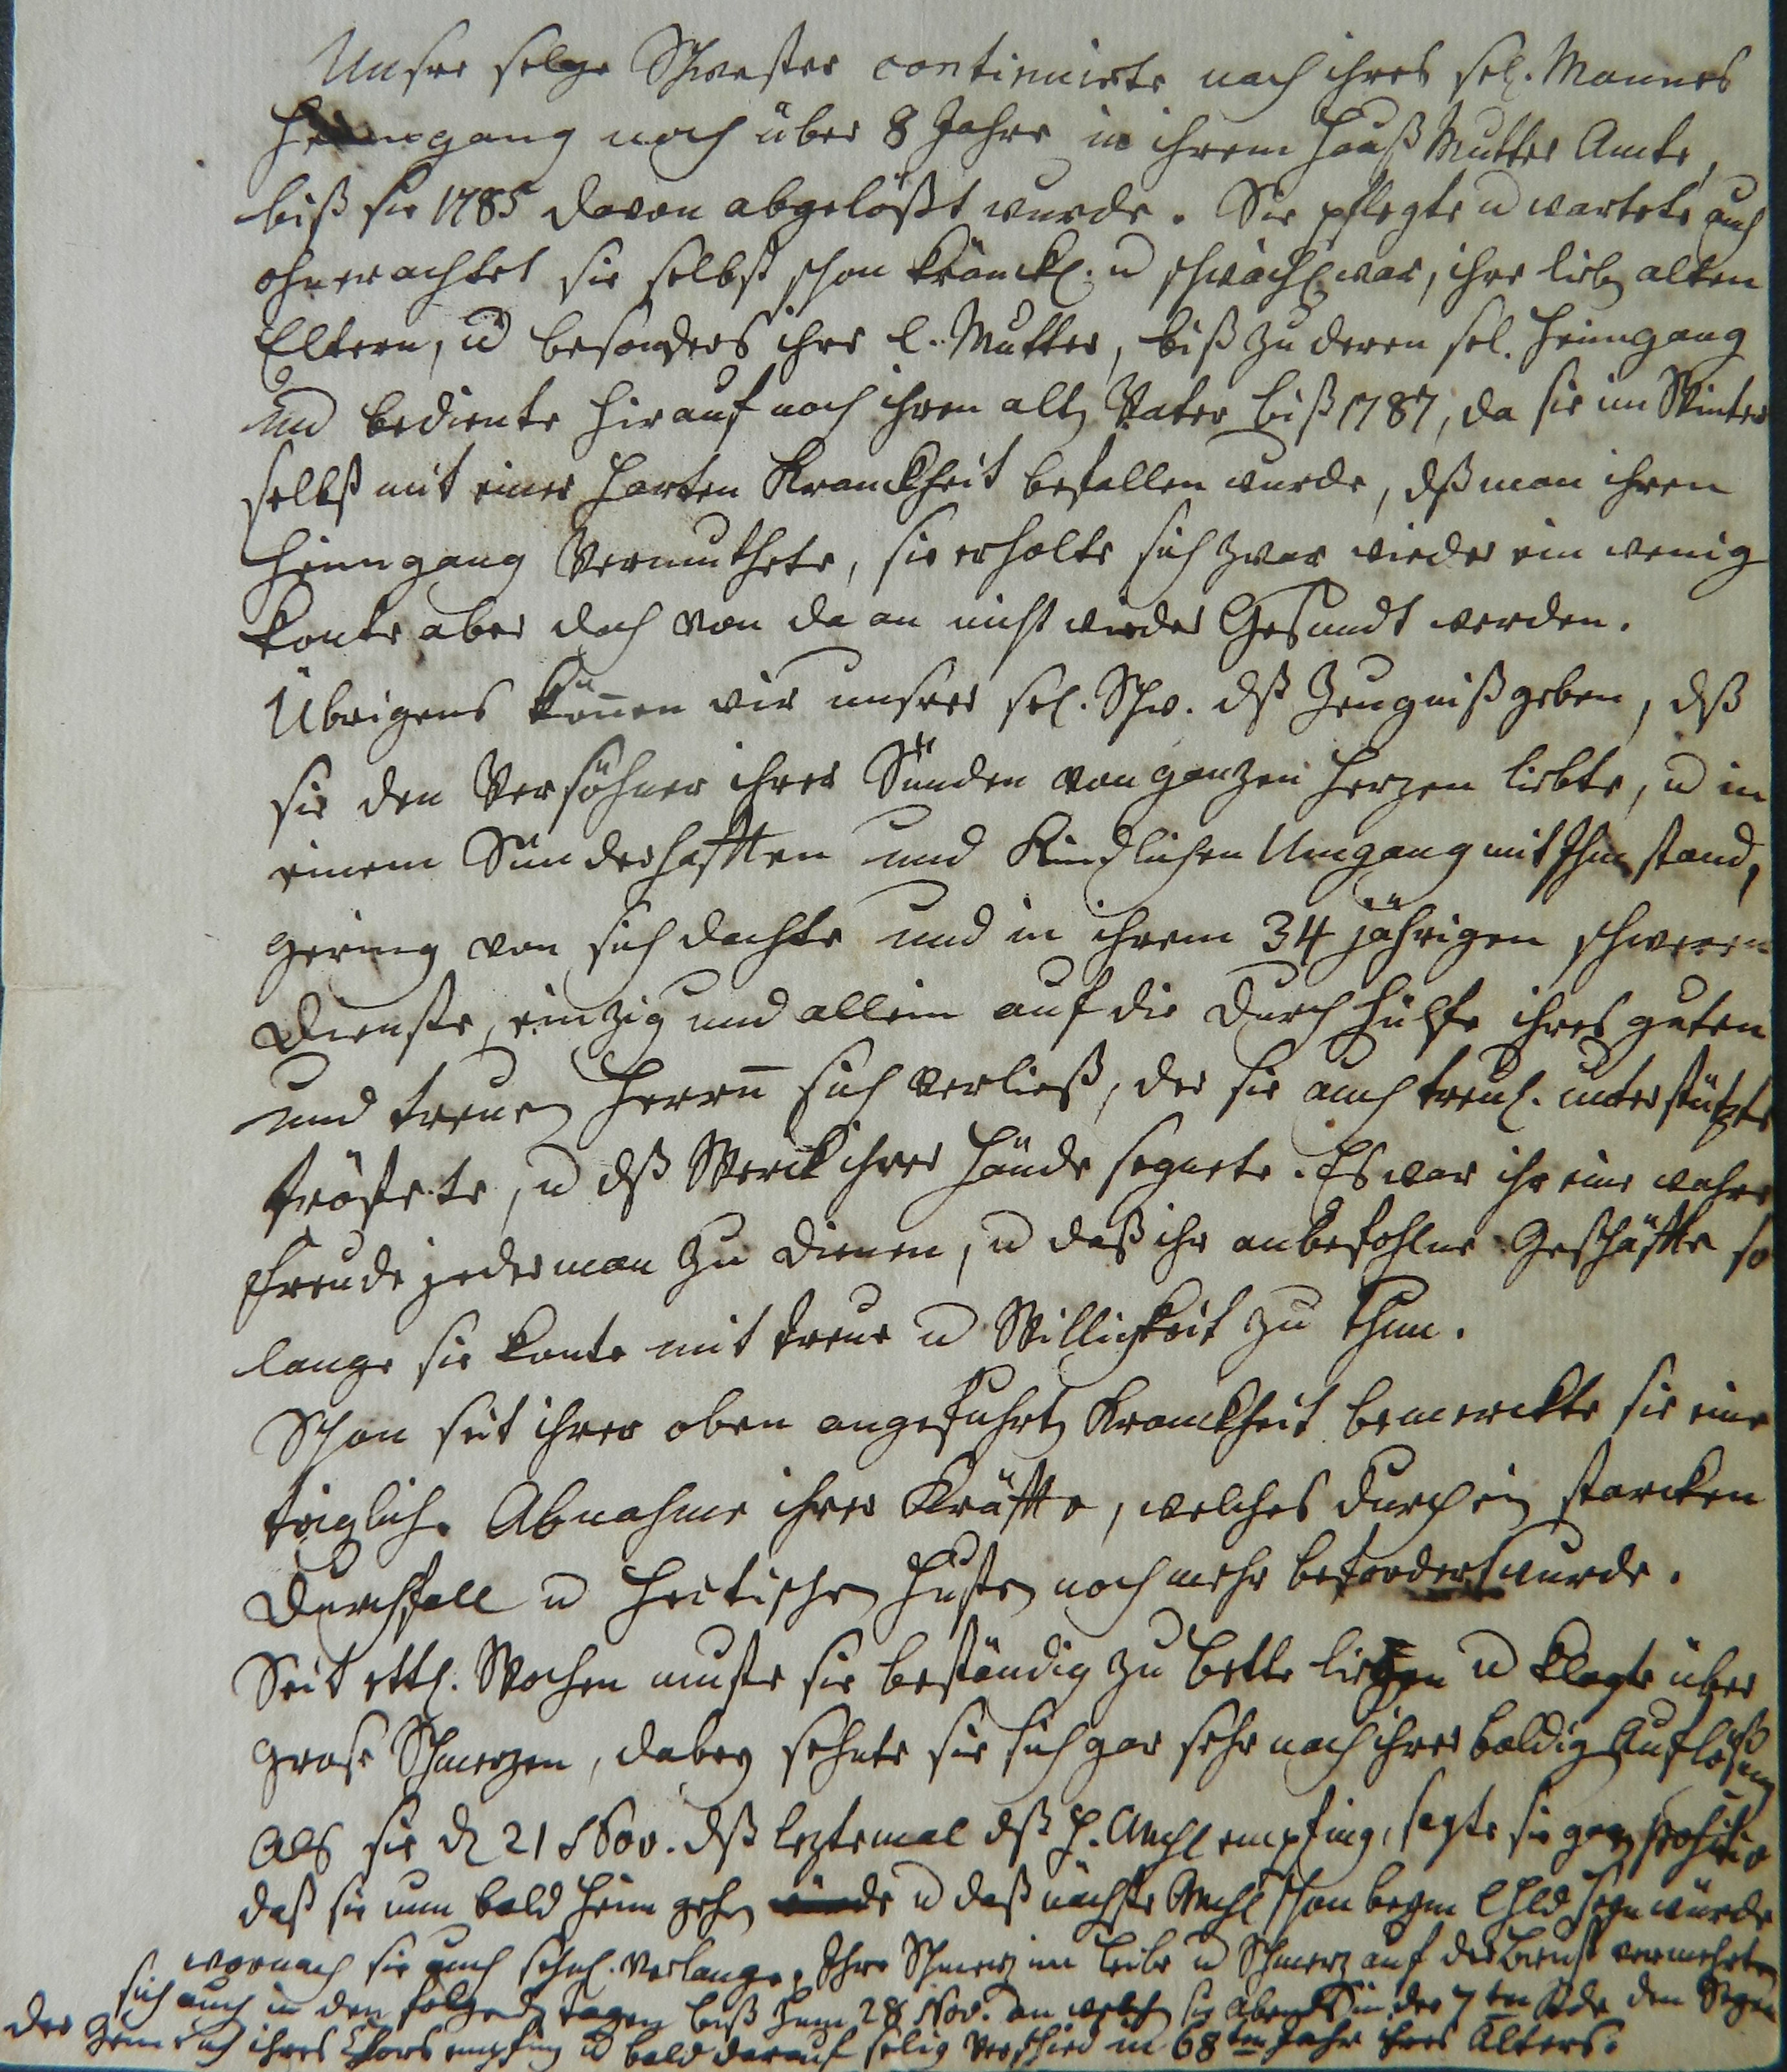 Unsre selge Schwester continuirte nach ihres sel. Mannes
Heimgang noch über 8 Jahre in ihrem Hauß Mutter Amte,
biß sie 1785 davon abgelößt wurde. Sie pflegte u wartete auch
ohnerachtet sie selbst schon kränckl. u schwächl. war, ihre lieben alten
Eltern, u besonders ihre l. Mutter, biß zu deren sel. Heimgang
und bediente hierauf noch ihren alten Vater biß 1787, da sie im Winter
selbst mit einer harten Kranckheit befallen wurde, dß man ihren
Heimgang vermuthete, sie erholte sich zwar wieder ein wenig
konte aber doch von da an nicht wieder Gesundt werden.
Übrigens können wir unsrer sel. Schw. dß Zeugniß geben, dß
sie den Versöhner ihrer Sünden von ganzen Herzen liebte, u in
einem Sünderhafften und Kindlichen Umgang mit Ihm stand,
gering von sich dachte und in ihrem 34 jährigen schweren
Dienste, einzig und allein auf die Durchhülfe ihres guten
und treuen Herrn sich verließ, der sie auch treul. unterstützte
tröstete, u dß Werck ihrer Hände segnete. Es war ihr eine wahre
Freude jederman zu dienen, u daß ihr anbefohlne Geschäffte so
lange sie konte mit treue u Willigkeit zu thun.
Schon seit ihrer oben angeführten Kranckheit bemerckte sie eine
tägliche Abnahme ihrer Kräffte, welches durch ein starcken
Durchfall u hectischen Husten noch mehr befördert wurde.
Seit ettl. Wochen muste sie beständig zu Bette liegen u klagte über
grose Schmerzen, dabey sehnte sie sich gar sehr nach ihrer baldigen Auflößung
Als sie d 21 Nov. dß leztemal dß H. Amhl empfing, sagte sie ganz positiv
daß sie nun bald heim gehen würde u daß nächste Amhl schon beym lHld seyn würde
wornach sie auch sehnl. verlange. Ihre Schmerz im Leibe u Schmerz auf der Brust vermehrten
sich auch in den folgenden Tagen biß zum 28 Nov. an welchen sie Abends in der 7ten Stde den Segen
der Gemeine u ihres Chors empfing u bald darauf selig verschied in 68ten Jahr ihres Alters.